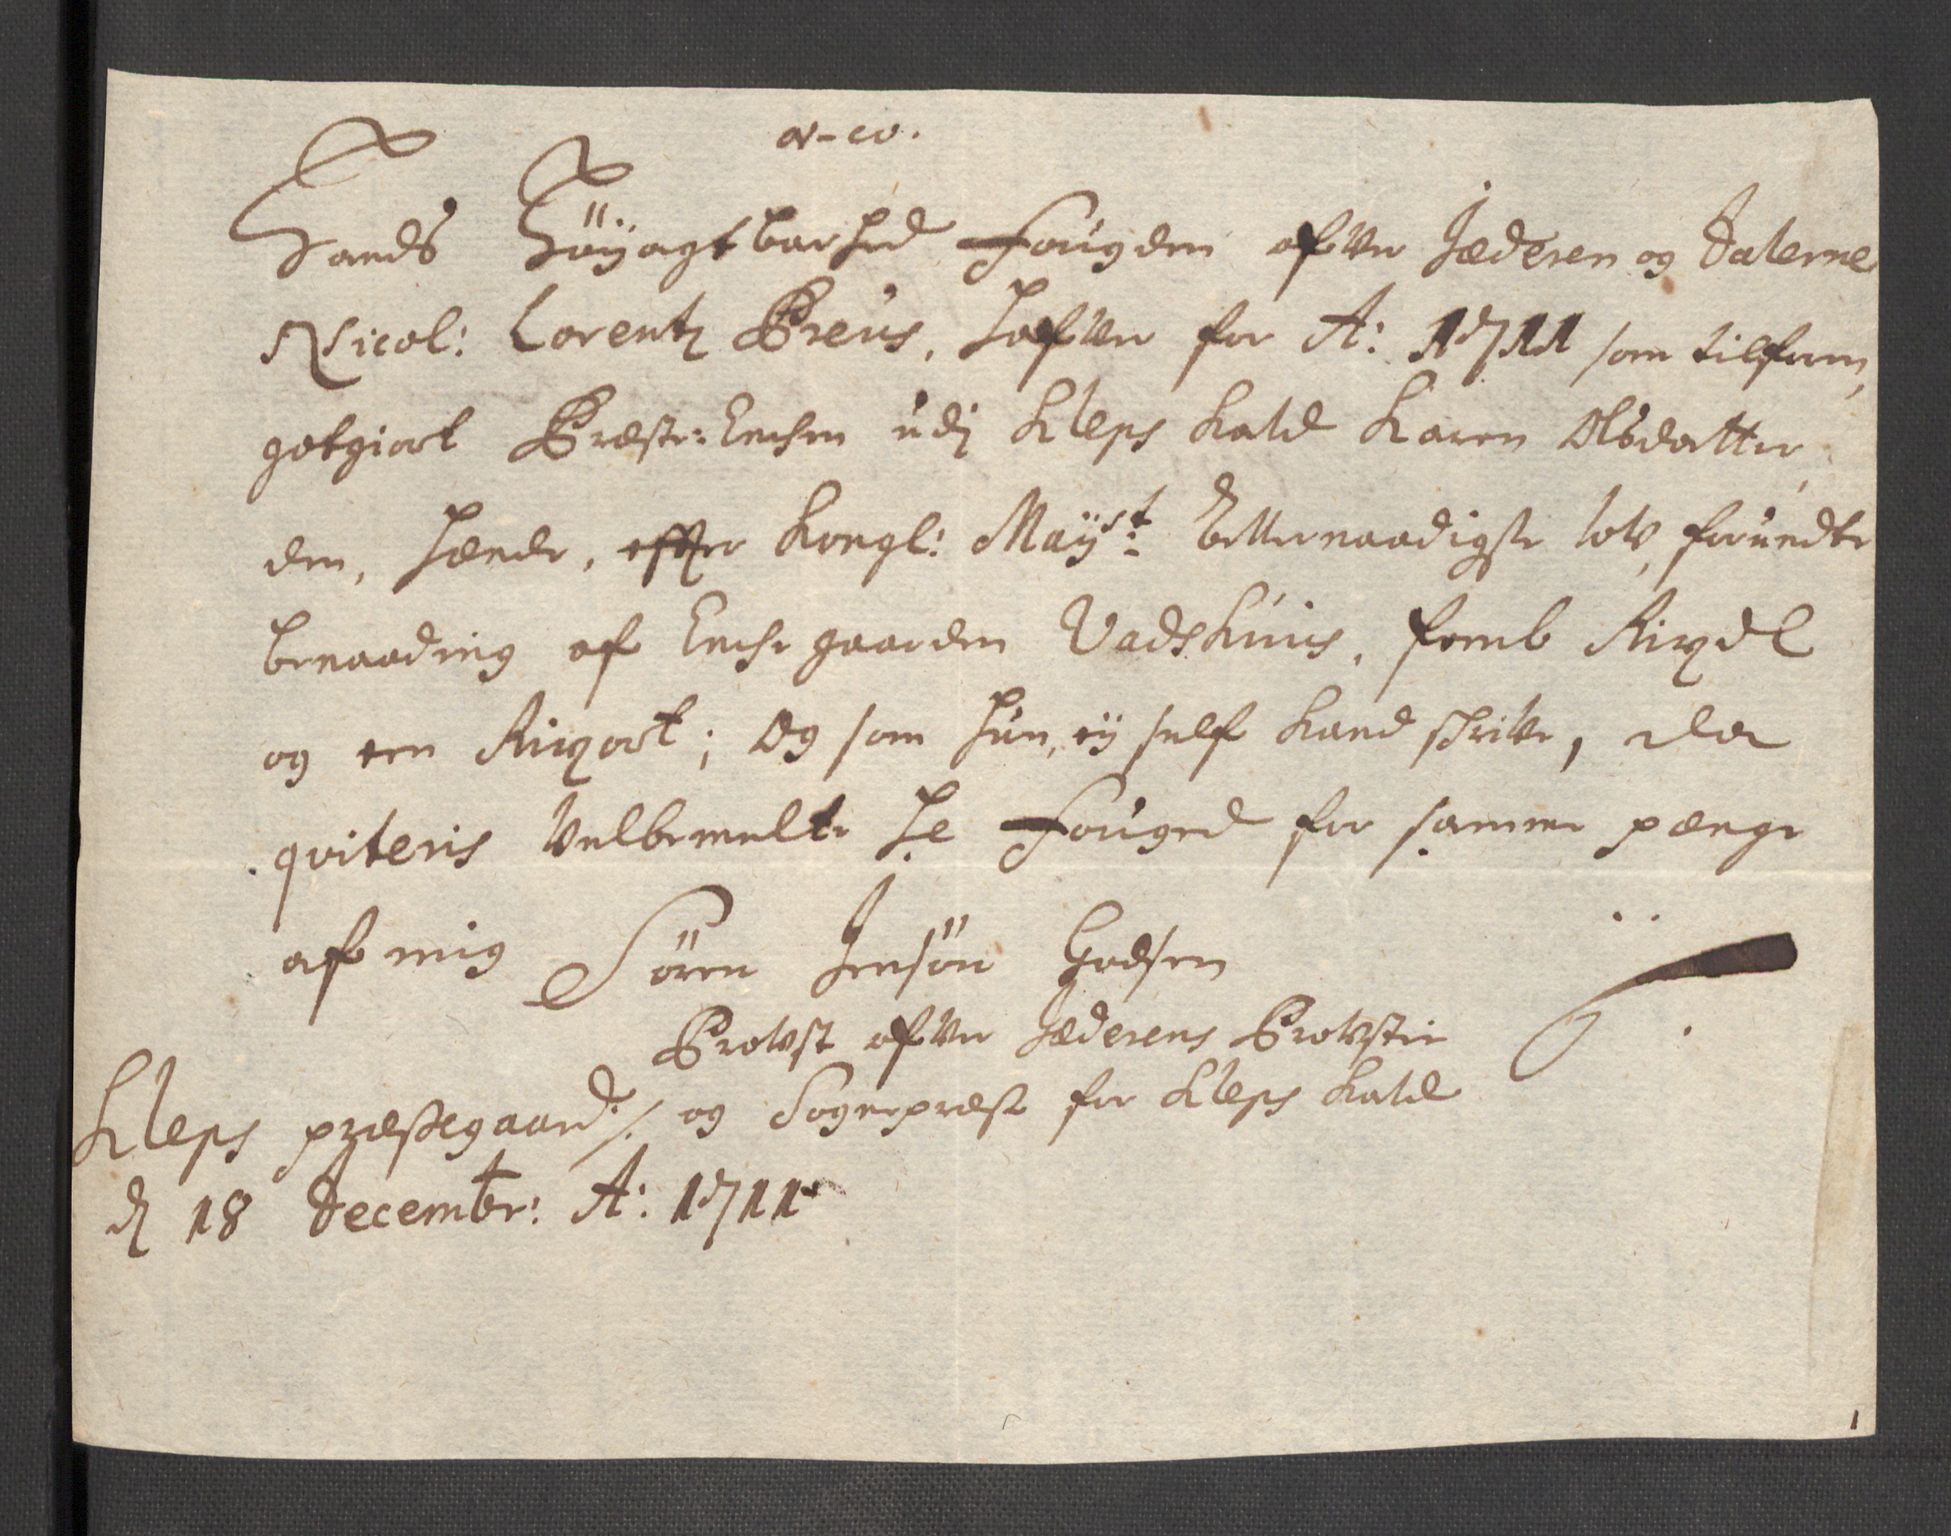 Hands Höÿagtbarhed Fougden ofver Jæderen og Dalerne
Nicol: Lorentz Preus, hafver for A: 1711 som tilforn,
gotgiort Præste-Enchen udj Kleps Kald Karen Olsdatter,
den, hende, effter Kongl: Maÿst: allernaadigste lov, forundte
benaading af Enche gaarden Vadshuus, femb Rixdl
og een Rixort; Og som hun, eÿ self kand schrifve, da
qviteris Velbemelte Hr Fouged for samme penge
af mig Sören Jensön Godsen
Provst ofver Jæderens Provstie
og Sognepræst for Kleps Kald
Kleps præstegaard /
dj 18 Decembr: A: 1711
1